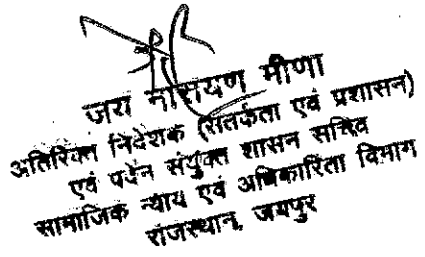 जय नारायण मीणा
अतिरिक्त निदेशक (सतर्कता एवं प्रशासन)
एवं पदेन संयुक्त शासन सचिव
सामाजिक न्याय एवं अधिकारिता विभाग
राजस्थान, जयपुर